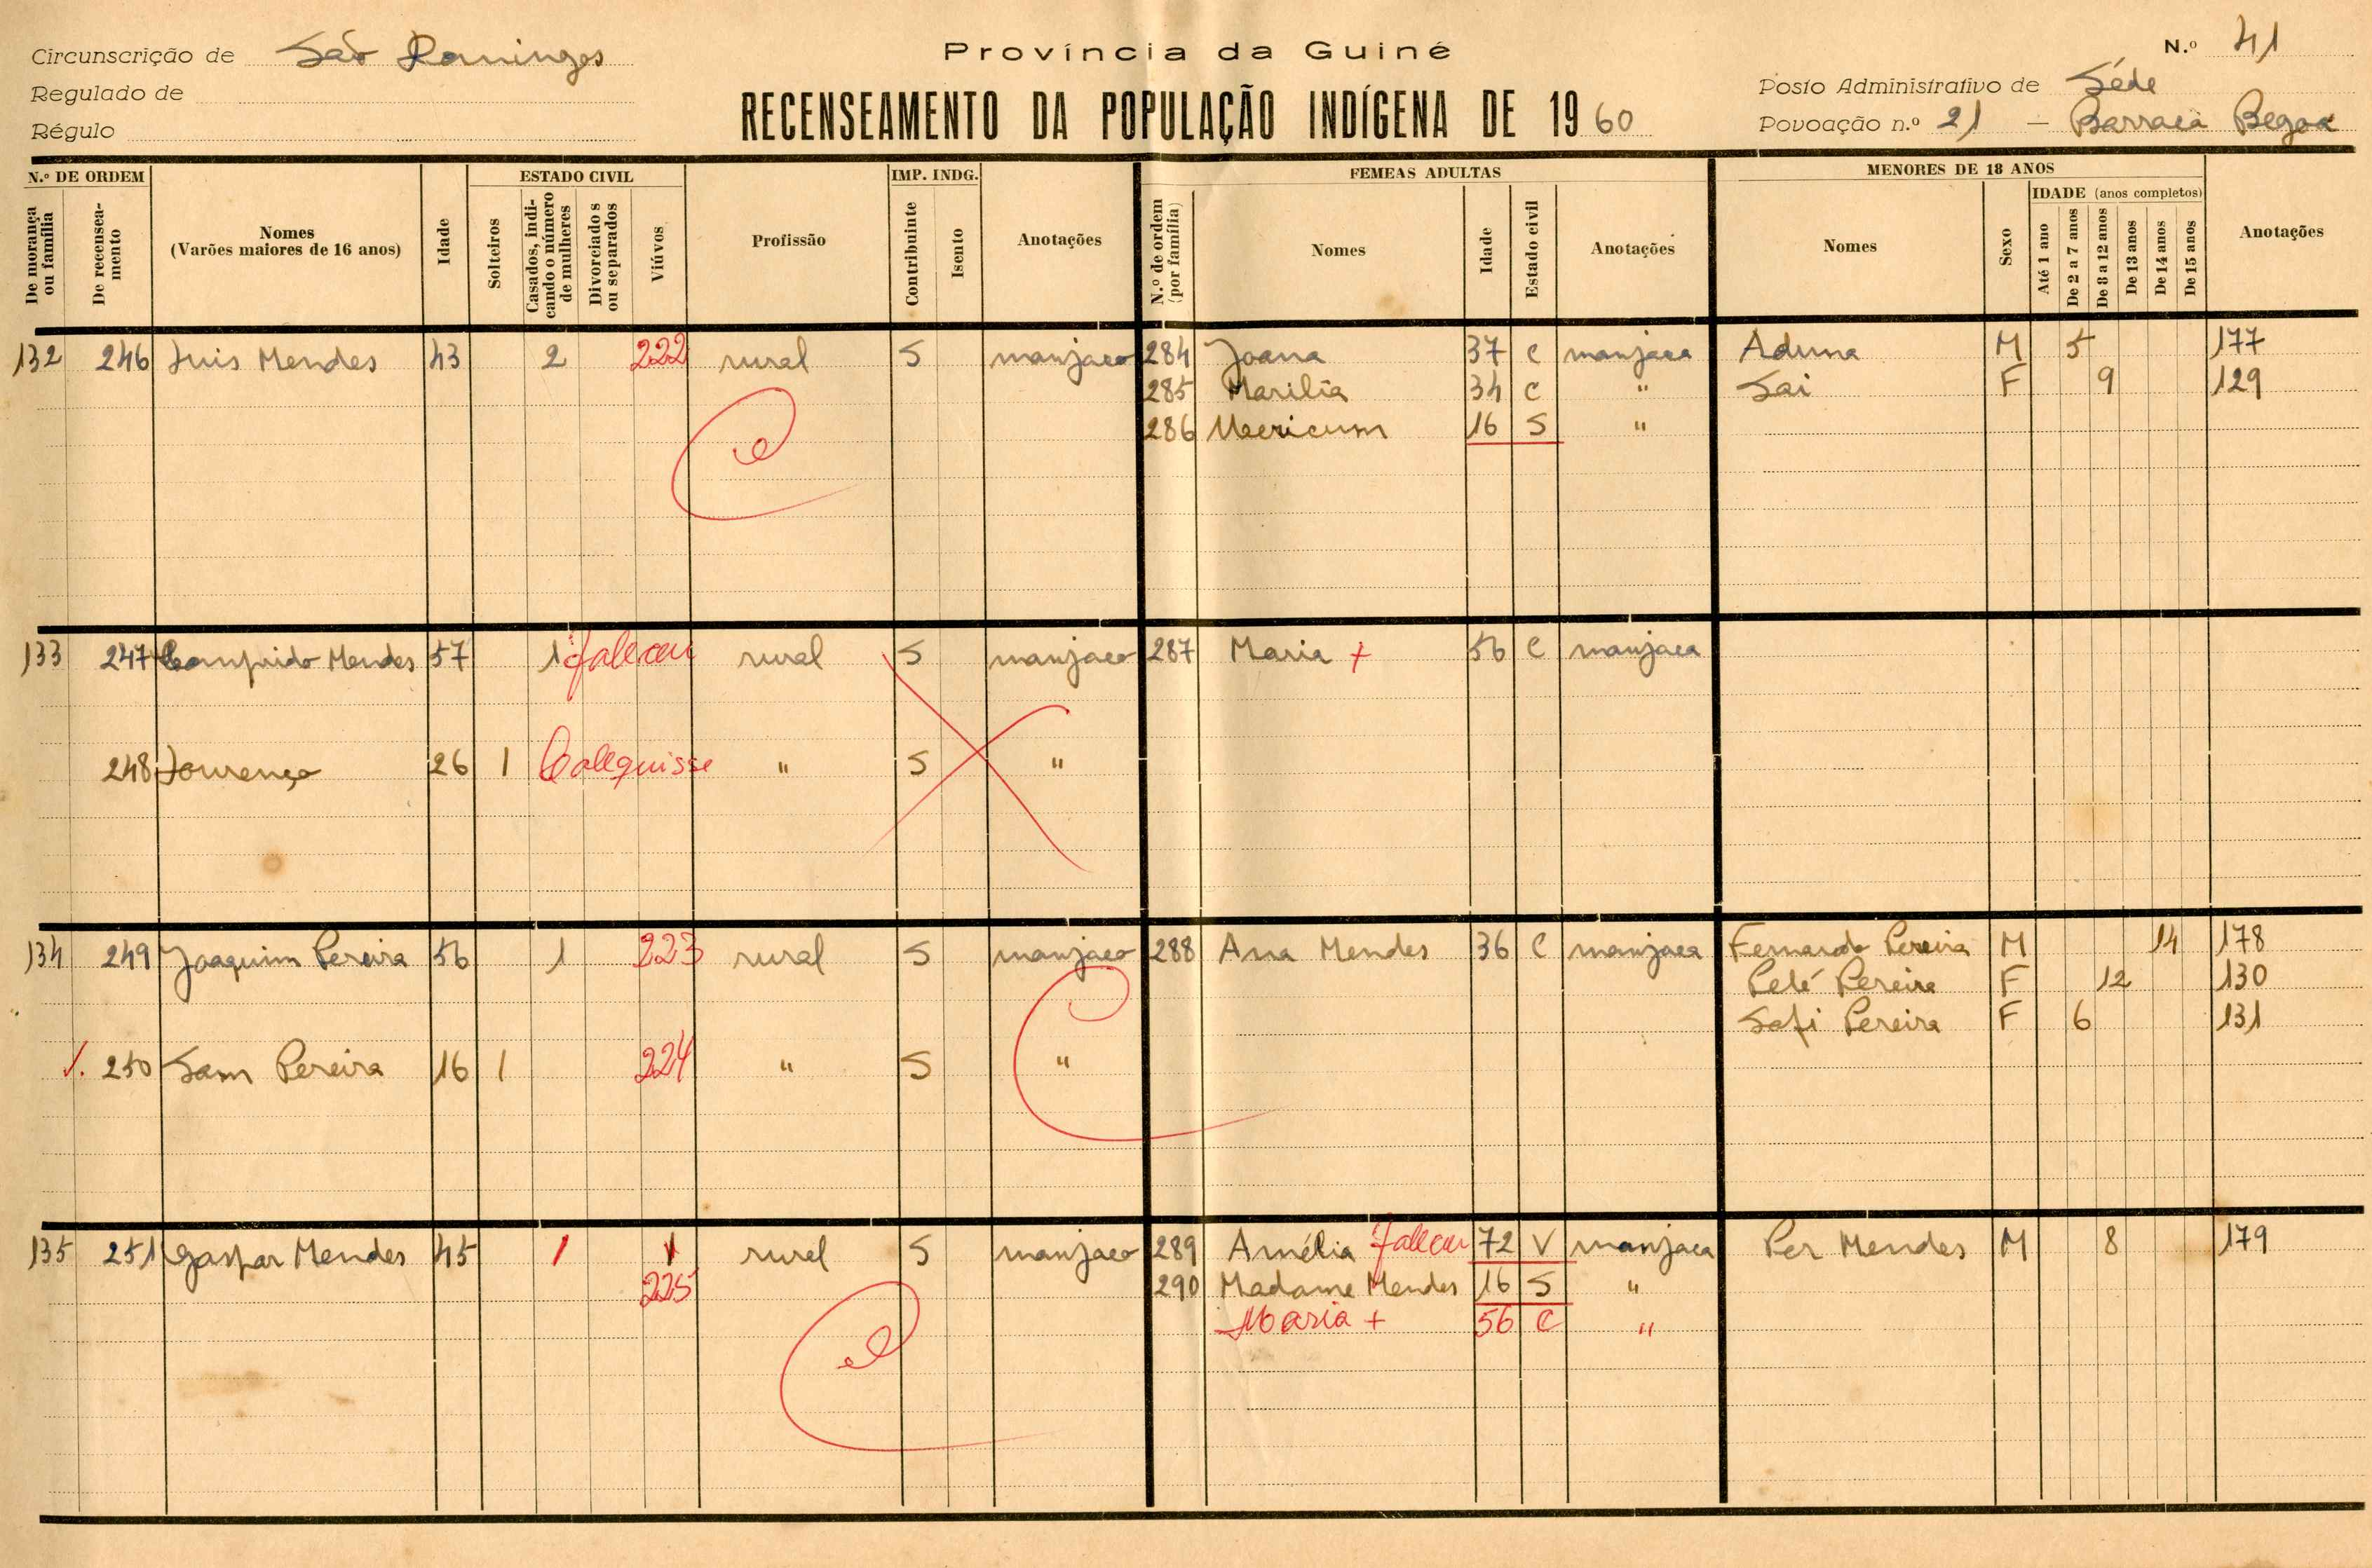 Circunscrição de São Domingos
Regulado de
Régulo
Província da Guiné
RECENSEAMENTO DA POPULAÇÃO INDÍGENA DE 1960
N.º 41
Posto Administrativo de Séde
Povoação n.º 21 — Barraca Begoa
N.º DE ORDEM
De morança ou família
De recenseamento
Nomes
(Varões maiores de 16 anos)
Idade
ESTADO CIVIL
Solteiros
Casados, indicando o número de mulheres
Divorciados ou separados
Viúvos
Profissão
IMP. INDG.
Contribuinte
Isento
Anotações
FEMEAS ADULTAS
N.º de ordem (por família)
Nomes
Idade
Estado civil
Anotações
MENORES DE 18 ANOS
Nomes
Sexo
IDADE (anos completos)
Até 1 ano
De 2 a 7 anos
De 8 a 12 anos
De 13 anos
De 14 anos
De 15 anos
Anotações
132 246 Luis Mendes 43 2 222 rural S manjaco 284 Joana 37 C manjaca Aduna M 5 177
285 Marilia 34 C " Sai F 9 129
286 16 S "
133 247 Comprido Mendes 57 1 faleceu rural S manjaco 287 Maria + 56 C manjaca
248 Lourenço 26 1 Calequisse " S "
134 249 Joaquim Pereira 56 1 223 rural S manjaco 288 Ana Mendes 36 C manjaca Fernando Pereira M 14 178
Peté Pereira F 12 130
Safi Pereira F 6 131
250 Sam Pereira 16 1 224 " S "
135 251 Gaspar Mendes 45 1 1 rural S manjaco 289 Amélia Faleceu 72 V manjaca Per Mendes M 8 179
225 290 Madame Mendes 16 S "
Maria + 56 C "